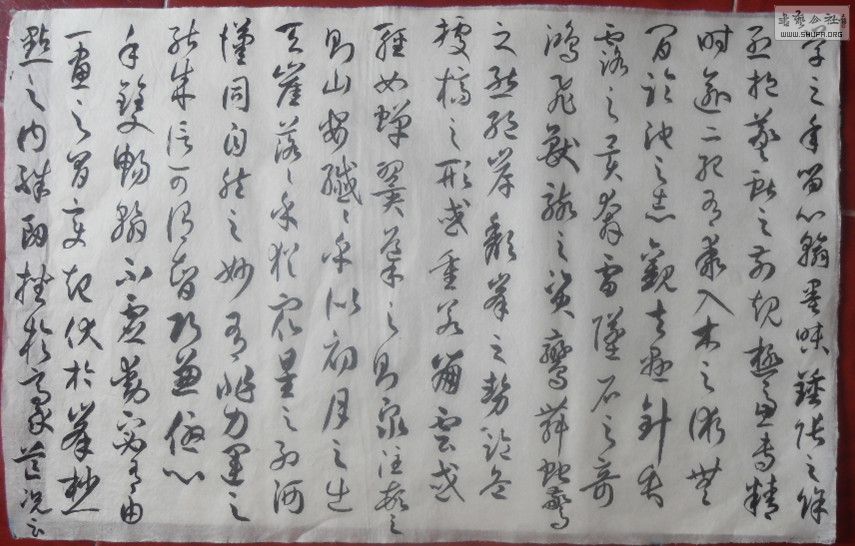 學之年留心翰墨味鍾張之餘
烈挹羲獻之前規極慮專精
時逾二紀有乖入木之術無
間臨池之志觀夫懸針垂
露之異奔雷墜石之奇
鴻飛獸駭之資鸞舞蛇驚
之態絕岸頹峯之勢臨危
據槁之形或重若崩雲或
輕如蟬翼導之則泉注頓之
則山安纖〻乎似初月之出
天崖落〻乎猶眾星之列河
漢同自然之妙有非力運之
能成信可謂智巧兼優心
手雙暢翰不虛動下必有由
一畫之間變起伏於峯杪
點之內殊衄挫於豪芒況云
書藝公社
WWW.SHUFA.ORG